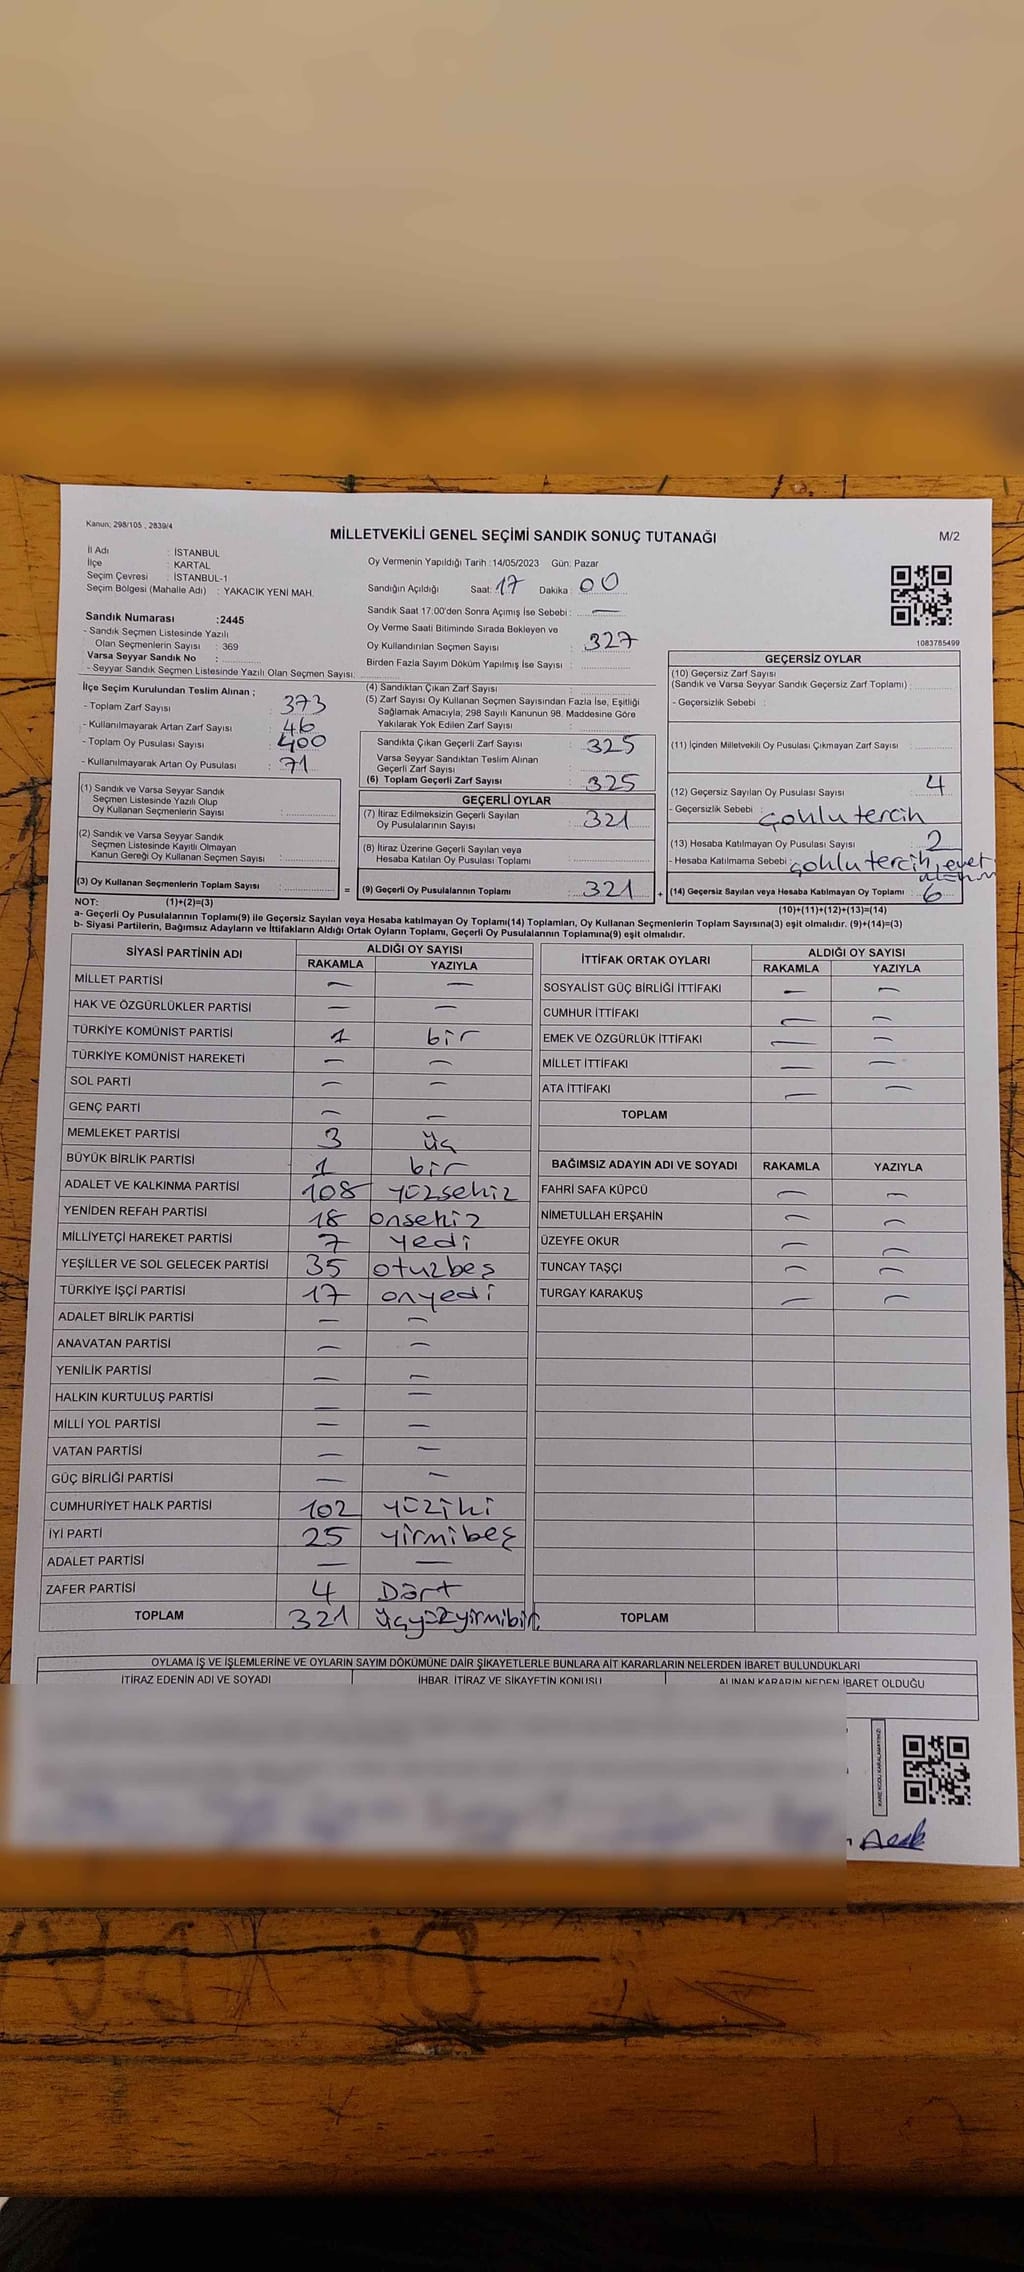 Kanun; 298/105 , 2839/4
MİLLETVEKİLİ GENEL SEÇİMİ SANDIK SONUÇ TUTANAĞI
M/2
İl Adı : İSTANBUL
İlçe : KARTAL
Seçim Çevresi : İSTANBUL-1
Seçim Bölgesi (Mahalle Adı) : YAKACIK YENİ MAH.
Oy Vermenin Yapıldığı Tarih :14/05/2023 Gün: Pazar
Sandığın Açıldığı Saat: 17 Dakika : 00
Sandık Saat 17:00'den Sonra Açımış İse Sebebi : —
Oy Verme Saati Bitiminde Sırada Bekleyen ve
Oy Kullandırılan Seçmen Sayısı : 327
Birden Fazla Sayım Döküm Yapılmış İse Sayısı :
Sandık Numarası :2445
- Sandık Seçmen Listesinde Yazılı
Olan Seçmenlerin Sayısı : 369
Varsa Seyyar Sandık No :
- Seyyar Sandık Seçmen Listesinde Yazılı Olan Seçmen Sayısı:
1083785499
İlçe Seçim Kurulundan Teslim Alınan ;
- Toplam Zarf Sayısı : 373
- Kullanılmayarak Artan Zarf Sayısı : 46
- Toplam Oy Pusulası Sayısı : 400
- Kullanılmayarak Artan Oy Pusulası : 71
(1) Sandık ve Varsa Seyyar Sandık
Seçmen Listesinde Yazılı Olup
Oy Kullanan Seçmenlerin Sayısı :
(2) Sandık ve Varsa Seyyar Sandık
Seçmen Listesinde Kayıtlı Olmayan
Kanun Gereği Oy Kullanan Seçmen Sayısı :
(3) Oy Kullanan Seçmenlerin Toplam Sayısı :
=
(4) Sandıktan Çıkan Zarf Sayısı :
(5) Zarf Sayısı Oy Kullanan Seçmen Sayısından Fazla İse, Eşitliği
Sağlamak Amacıyla; 298 Sayılı Kanunun 98. Maddesine Göre
Yakılarak Yok Edilen Zarf Sayısı :
Sandıkta Çıkan Geçerli Zarf Sayısı : 325
Varsa Seyyar Sandıktan Teslim Alınan
Geçerli Zarf Sayısı :
(6) Toplam Geçerli Zarf Sayısı : 325
GEÇERLİ OYLAR
(7) İtiraz Edilmeksizin Geçerli Sayılan
Oy Pusulalarının Sayısı : 321
(8) İtiraz Üzerine Geçerli Sayılan veya
Hesaba Katılan Oy Pusulası Toplamı :
(9) Geçerli Oy Pusulalarının Toplamı : 321
+
GEÇERSİZ OYLAR
(10) Geçersiz Zarf Sayısı
(Sandık ve Varsa Seyyar Sandık Geçersiz Zarf Toplamı) :
- Geçersizlik Sebebi :
(11) İçinden Milletvekili Oy Pusulası Çıkmayan Zarf Sayısı :
(12) Geçersiz Sayılan Oy Pusulası Sayısı : 4
- Geçersizlik Sebebi : çoklu tercih
(13) Hesaba Katılmayan Oy Pusulası Sayısı : 2
- Hesaba Katılmama Sebebi : çoklu tercih, evet
(14) Geçersiz Sayılan veya Hesaba Katılmayan Oy Toplamı : 6
NOT: (1)+(2)=(3)
(10)+(11)+(12)+(13)=(14)
a- Geçerli Oy Pusulalarının Toplamı(9) ile Geçersiz Sayılan veya Hesaba katılmayan Oy Toplamı(14) Toplamları, Oy Kullanan Seçmenlerin Toplam Sayısına(3) eşit olmalıdır. (9)+(14)=(3)
b- Siyasi Partilerin, Bağımsız Adayların ve İttifakların Aldığı Ortak Oyların Toplamı, Geçerli Oy Pusulalarının Toplamına(9) eşit olmalıdır.
SİYASİ PARTİNİN ADI ALDIĞI OY SAYISI
RAKAMLA YAZIYLA
MİLLET PARTİSİ — —
HAK VE ÖZGÜRLÜKLER PARTİSİ — —
TÜRKİYE KOMÜNİST PARTİSİ 1 bir
TÜRKİYE KOMÜNİST HAREKETİ — —
SOL PARTİ — —
GENÇ PARTİ — —
MEMLEKET PARTİSİ 3 üç
BÜYÜK BİRLİK PARTİSİ 1 bir
ADALET VE KALKINMA PARTİSİ 108 yüzsekiz
YENİDEN REFAH PARTİSİ 18 onsekiz
MİLLİYETÇİ HAREKET PARTİSİ 7 yedi
YEŞİLLER VE SOL GELECEK PARTİSİ 35 otuzbeş
TÜRKİYE İŞÇİ PARTİSİ 17 onyedi
ADALET BİRLİK PARTİSİ — —
ANAVATAN PARTİSİ — —
YENİLİK PARTİSİ — —
HALKIN KURTULUŞ PARTİSİ — —
MİLLİ YOL PARTİSİ — —
VATAN PARTİSİ — —
GÜÇ BİRLİĞİ PARTİSİ — —
CUMHURİYET HALK PARTİSİ 102 yüziki
İYİ PARTİ 25 yirmibeş
ADALET PARTİSİ — —
ZAFER PARTİSİ 4 Dört
TOPLAM 321 üçyüzyirmibir
İTTİFAK ORTAK OYLARI ALDIĞI OY SAYISI
RAKAMLA YAZIYLA
SOSYALİST GÜÇ BİRLİĞİ İTTİFAKI — —
CUMHUR İTTİFAKI — —
EMEK VE ÖZGÜRLÜK İTTİFAKI — —
MİLLET İTTİFAKI — —
ATA İTTİFAKI — —
TOPLAM
BAĞIMSIZ ADAYIN ADI VE SOYADI RAKAMLA YAZIYLA
FAHRİ SAFA KÜPCÜ — —
NİMETULLAH ERŞAHİN — —
ÜZEYFE OKUR — —
TUNCAY TAŞÇI — —
TURGAY KARAKUŞ — —
TOPLAM
OYLAMA İŞ VE İŞLEMLERİNE VE OYLARIN SAYIM DÖKÜMÜNE DAİR ŞİKAYETLERLE BUNLARA AİT KARARLARIN NELERDEN İBARET BULUNDUKLARI
İTİRAZ EDENİN ADI VE SOYADI İHBAR, İTİRAZ VE ŞİKAYETİN KONUSU ALINAN KARARIN NEDEN İBARET OLDUĞU